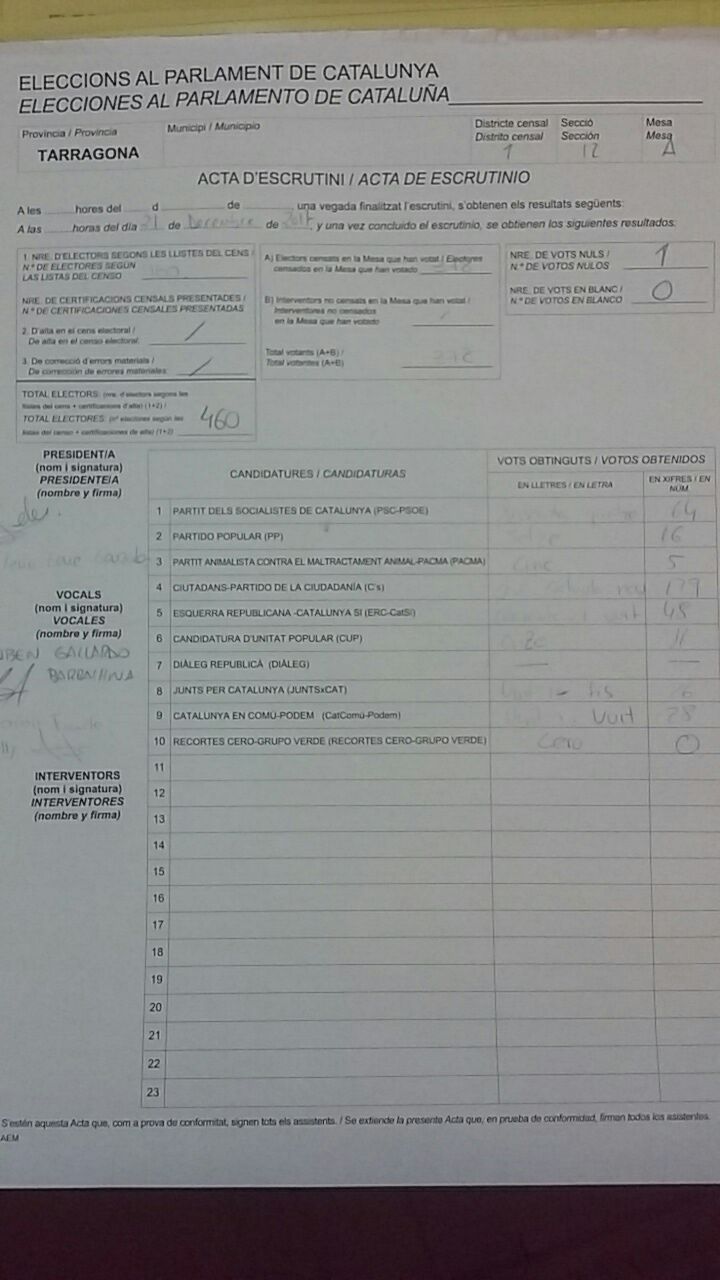 ELECCIONS AL PARLAMENT DE CATALUNYA
ELECCIONES AL PARLAMENTO DE CATALUÑA
Provincia / Provincia
TARRAGONA
Municipi / Municipio
Districte censal
Distrito censal
1
Secció
Sección
12
Mesa
Mesa
A
ACTA D'ESCRUTINI / ACTA DE ESCRUTINIO
A les hores del d de , una vegada finalitzat l'escrutini, s'obtenen els resultats següents:
A las horas del día 21 de Decembre de 2017, y una vez concluido el escrutinio, se obtienen los siguientes resultados:
1. NRE. D'ELECTORS SEGONS LES LLISTES DEL CENS /
N.º DE ELECTORES SEGÚN
LAS LISTAS DEL CENSO
NRE. DE CERTIFICACIONS CENSALS PRESENTADES /
N.º DE CERTIFICACIONES CENSALES PRESENTADAS
2. D'alta en el cens electoral /
De alta en el censo electoral: /
3. De correcció d'errors materials /
De corrección de errores materiales: /
TOTAL ELECTORS: (nre. d'electors segons les
llistes del cens + certificacions d'alta) (1+2) /
TOTAL ELECTORES: (nº electores según las
listas del censo + certificaciones de alta) (1+2) 460
A) Electors censats en la Mesa que han votat / Electores
censados en la Mesa que han votado 378
B) Interventors no censats en la Mesa que han votat /
Interventores no censados
en la Mesa que han votado /
Total votants (A+B) /
Total votantes (A+B) 378
NRE. DE VOTS NULS /
N.º DE VOTOS NULOS 1
NRE. DE VOTS EN BLANC /
N.º DE VOTOS EN BLANCO 0
PRESIDENT/A
(nom i signatura)
PRESIDENTE/A
(nombre y firma)
VOCALS
(nom i signatura)
VOCALES
(nombre y firma)
UBEN GALLARDO
BARBAHINA
INTERVENTORS
(nom i signatura)
INTERVENTORES
(nombre y firma)
CANDIDATURES / CANDIDATURAS
VOTS OBTINGUTS / VOTOS OBTENIDOS
EN LLETRES / EN LETRA
EN XIFRES / EN NÚM.
1 PARTIT DELS SOCIALISTES DE CATALUNYA (PSC-PSOE) 64
2 PARTIDO POPULAR (PP) 16
3 PARTIT ANIMALISTA CONTRA EL MALTRACTAMENT ANIMAL-PACMA (PACMA) Cinc 5
4 CIUTADANS-PARTIDO DE LA CIUDADANÍA (C's) nou 179
5 ESQUERRA REPUBLICANA -CATALUNYA SÍ (ERC-CatSí) vuit 48
6 CANDIDATURA D'UNITAT POPULAR (CUP) 11
7 DIÀLEG REPUBLICÀ (DIÀLEG) — —
8 JUNTS PER CATALUNYA (JUNTSxCAT) Vint i sis 26
9 CATALUNYA EN COMÚ-PODEM (CatComú-Podem) Vint i Vuit 28
10 RECORTES CERO-GRUPO VERDE (RECORTES CERO-GRUPO VERDE) Cero 0
11
12
13
14
15
16
17
18
19
20
21
22
23
S'estén aquesta Acta que, com a prova de conformitat, signen tots els assistents. / Se extiende la presente Acta que, en prueba de conformidad, firman todos los asistentes.
AEM